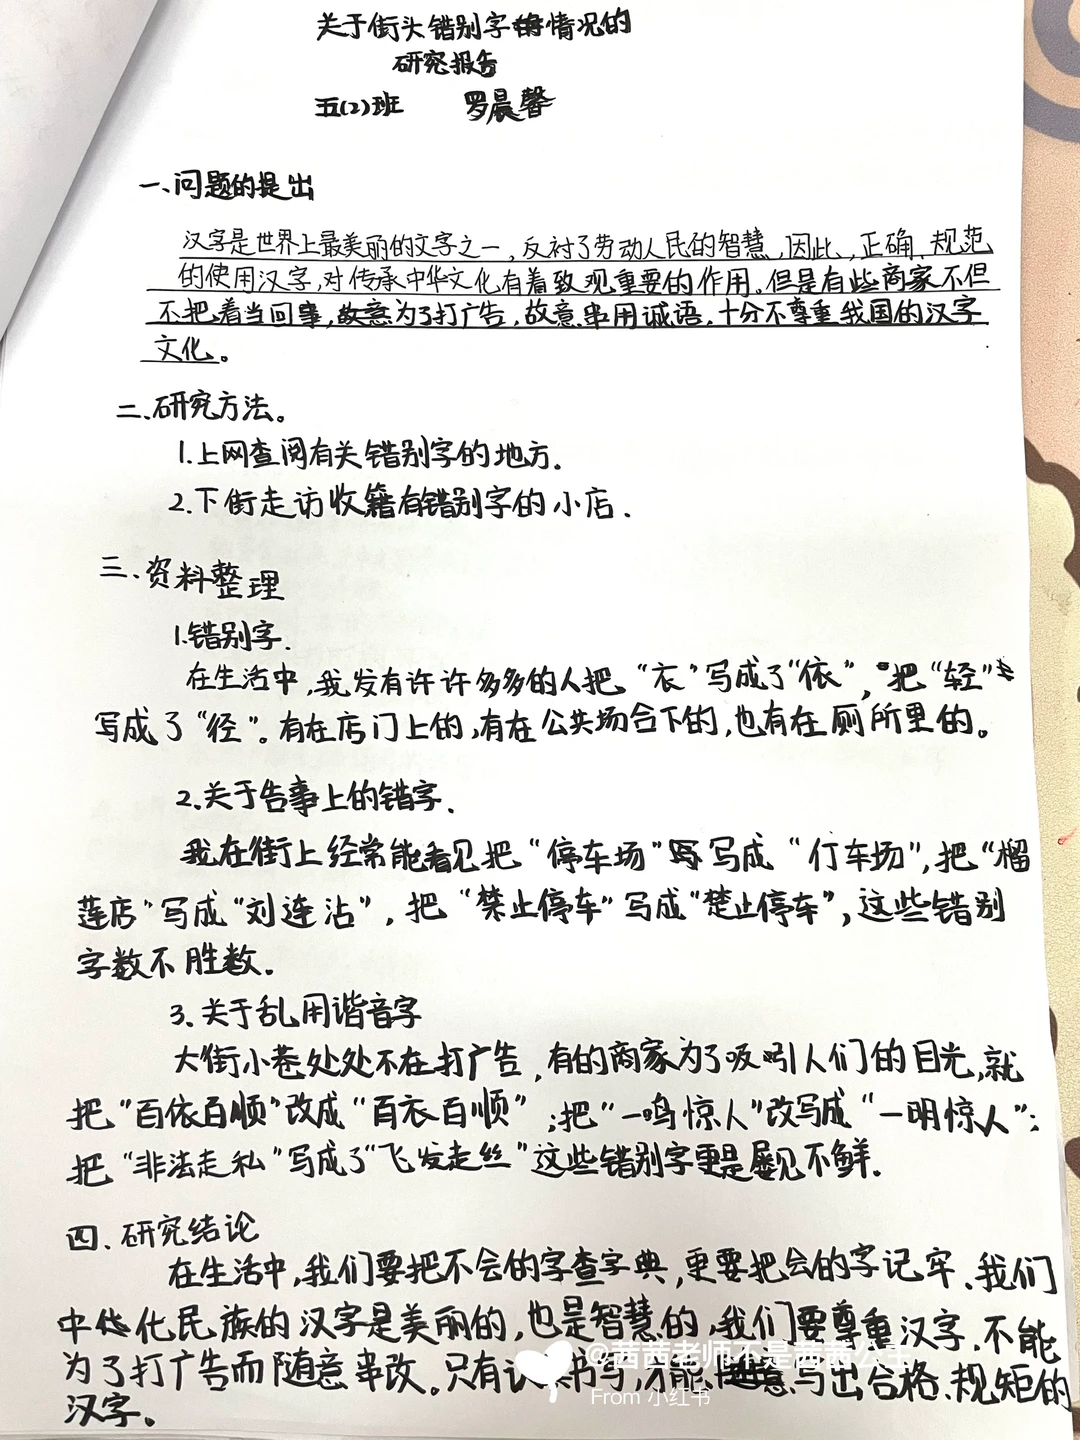 关于街头错别字情况的
研究报告
五(2)班 罗晨馨
一、问题的提出
汉字是世界上最美丽的文字之一,反衬了劳动人民的智慧,因此,正确、规范
的使用汉字,对传承中华文化有着致观重要的作用。但是有些商家不但
不把着当回事,故意为了打广告,故意串用诚语,十分不尊重我国的汉字
文化。
二、研究方法。
1.上网查阅有关错别字的地方.
2.下街走访收籍有错别字的小店.
三、资料整理
1.错别字.
在生活中,我发有许许多多的人把“衣”写成了“依”,把“轻”
写成了“径”。有在店门上的,有在公共场合下的,也有在厕所里的。
2.关于告事上的错字.
我在街上经常能看见把“停车场”写成“仃车场”,把“榴
莲店”写成“刘连沾”,把“禁止停车”写成“楚止停车”,这些错别
字数不胜数.
3.关于乱用谐音字
大街小巷处处不在打广告,有的商家为了吸吲人们的目光,就
把“百依百顺”改成“百衣百顺”;把“一鸣惊人”改写成“一明惊人”;
把“非法走私”写成了“飞发走丝”这些错别字更是屡见不鲜.
四、研究结论
在生活中,我们要把不会的字查字典,更要把会的字记牢、我们
中化民族的汉字是美丽的,也是智慧的,我们要尊重汉字.不能
为了打广告而随意串改。只有书写,才能写出合格、规矩的
汉字。
@茜茜老师不是茜茜公主
From 小红书